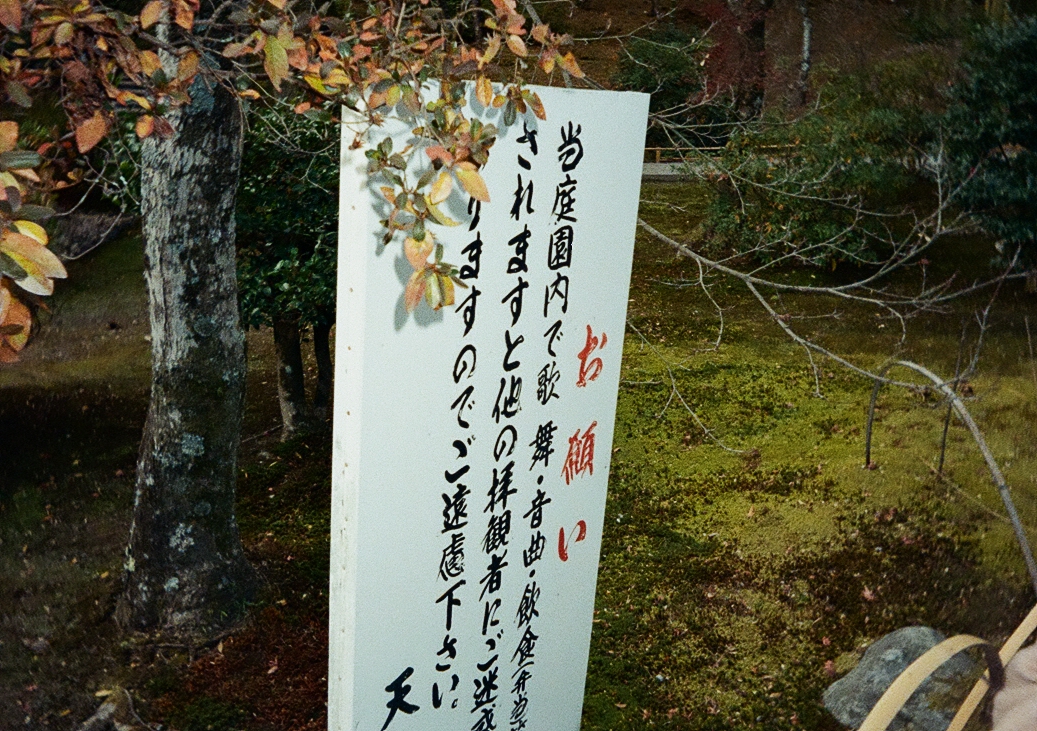 お願い
当庭園内で歌舞・音曲・飲食弁当
されますと他の拝観者にご迷惑
りますのでご遠慮下さい。
天